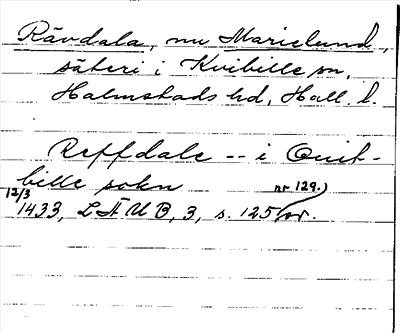 Rävdala, nu Marielund,
säteri i Kvibille sn,
Halmstads hd, Hall. l.
Reffdale -- i Quit-
bille sokn nr 129.)
12/3
1433, LÄUB, 3, s. 125/or.